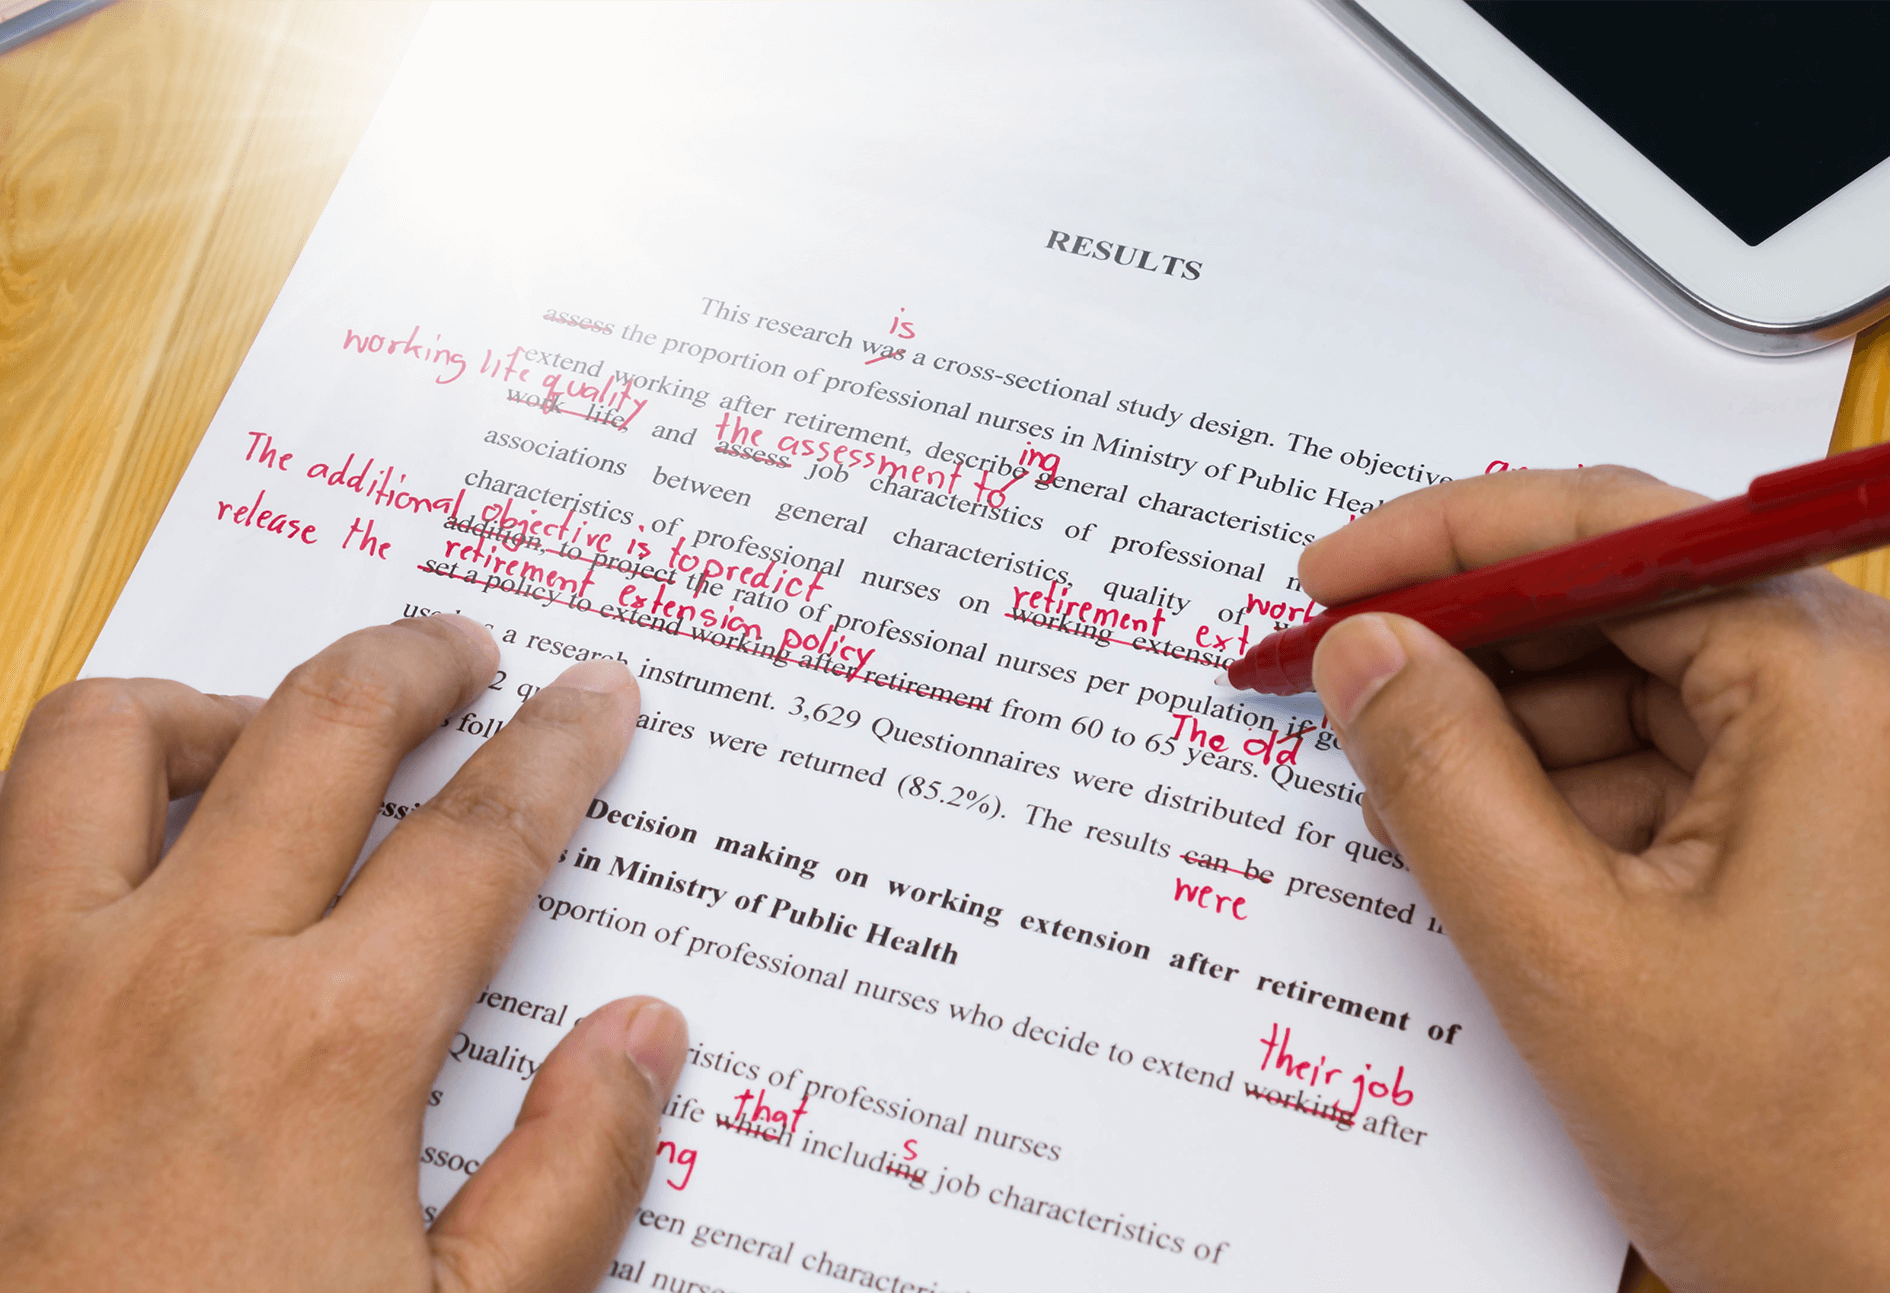 RESULTS
is
This research was a cross-sectional study design. The objective
assess the proportion of professional nurses in Ministry of Public
working life quality
extend working after retirement, describe general characteristics
ing
work life, and assess job characteristics of professional
the assessment to
associations between general characteristics, quality of
characteristics of professional nurses on working
retirement
The additional objective is to predict
addition, to project the ratio of professional nurses per population if
release the retirement extension policy
set a policy to extend working after retirement from 60 to 65 years.
The old
a research instrument. 3,629 Questionnaires were distributed for
were returned (85.2%). The results can be presented
were
Decision making on working extension after retirement of
in Ministry of Public Health
of professional nurses who decide to extend working after
their job
General
of professional nurses
Quality
life which including job characteristics of
that
s
general